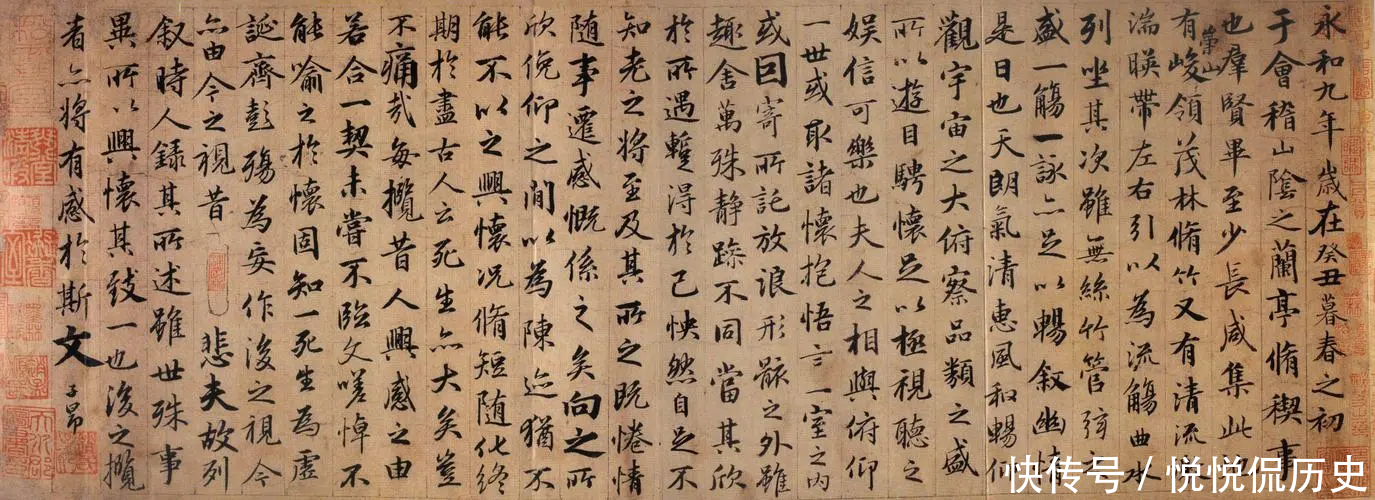 永和九年歲在癸丑暮春之初
于會稽山陰之蘭亭脩稧事
也羣賢畢至少長咸集此地
有崇山峻領茂林脩竹又有清流
湍暎帶左右引以為流觴曲水
列坐其次雖無絲竹管弦之
盛一觴一詠亦足以暢敘幽情
是日也天朗氣清惠風和暢仰
觀宇宙之大俯察品類之盛
所以遊目騁懷足以極視聽之
娛信可樂也夫人之相與俯仰
一世或取諸懷抱悟言一室之內
或因寄所託放浪形骸之外雖
趣舍萬殊靜躁不同當其欣
於所遇蹔得於己怏然自足不
知老之將至及其所之既惓情
随事遷感慨係之矣向之所
欣俛仰之間以為陳迹猶不
能不以之興懷況脩短随化終
期於盡古人云死生亦大矣豈
不痛哉每攬昔人興感之由
若合一契未嘗不臨文嗟悼不
能喻之於懷固知一死生為虛
誕齊彭殤為妄作後之視今
亦由今之視昔悲夫故列
敘時人錄其所述雖世殊事
異所以興懷其致一也後之攬
者亦將有感於斯文子昂
快传号/悦悦侃历史